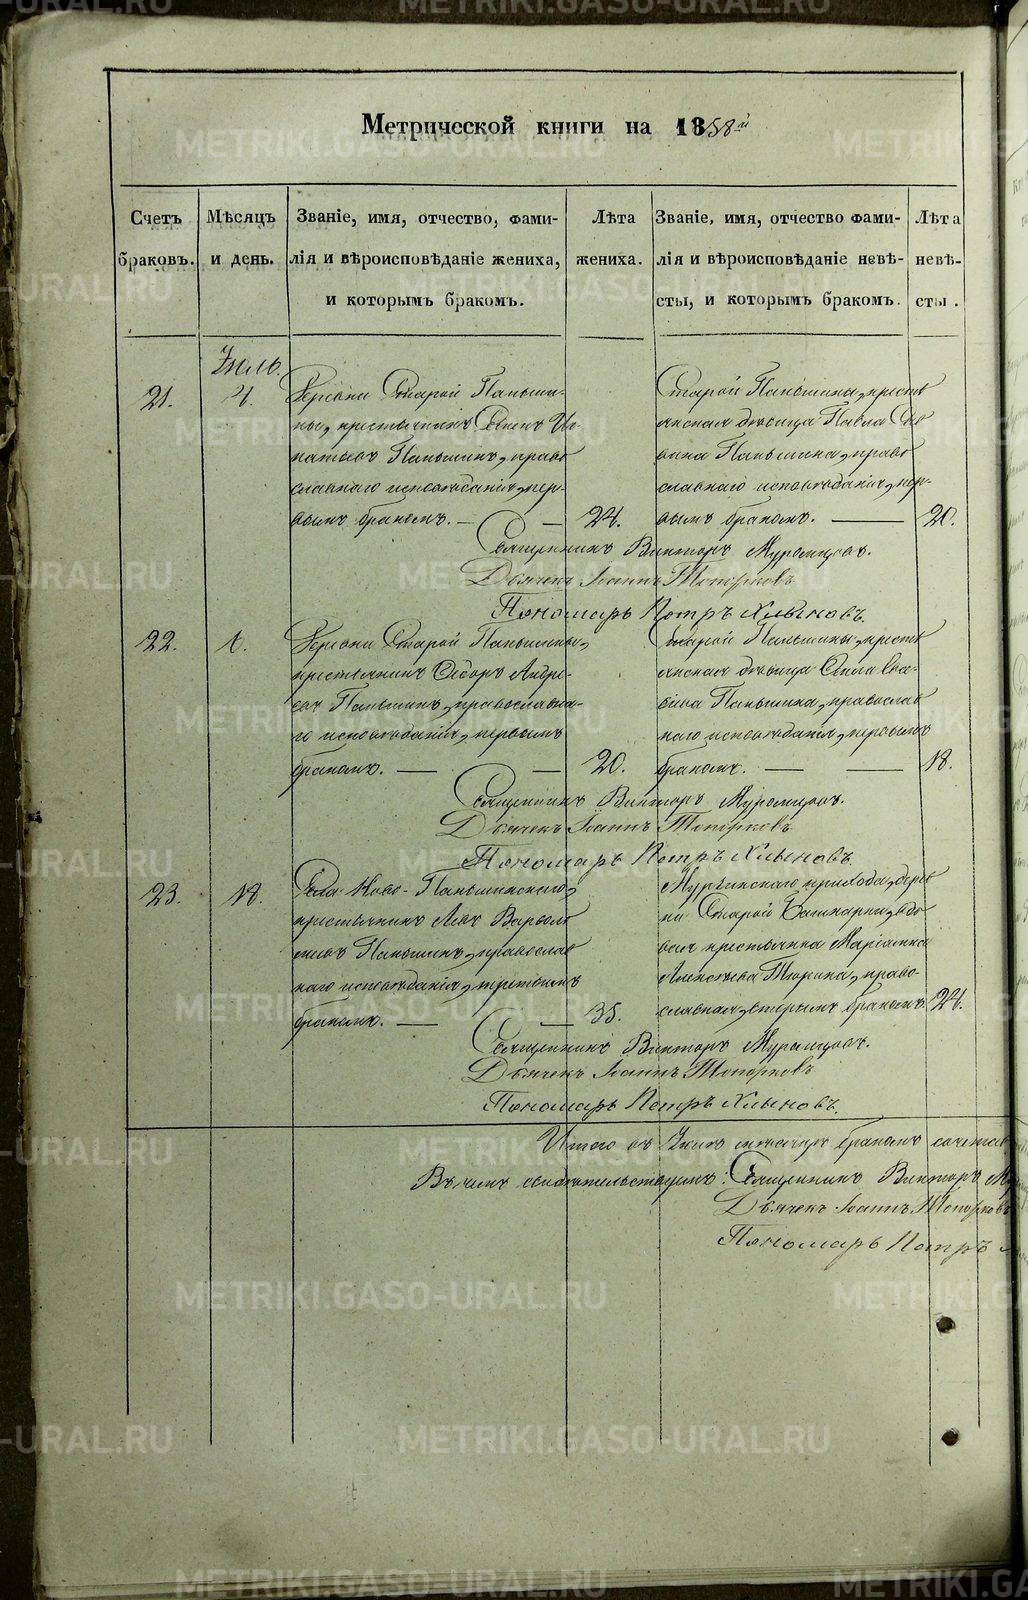 Метрической книги на 1858й
Счетъ браковъ.
Мѣсяцъ и день.
Званіе, имя, отчество, фами-
лія и вѣроисповѣданіе жениха,
и которымъ бракомъ.
Лѣта жениха.
Званіе, имя, отчество фами-
лія и вѣроисповѣданіе невѣ-
сты, и которымъ бракомъ.
Лѣта невѣ-
сты.
Іюль.
21.
4.
Деревни Старой Паньши-
ны, крестьянинъ Семенъ Иг-
натьевъ Паньшинъ, право
славнаго исповѣданія, пер-
вымъ бракомъ.
24.
Старой Паньшины, кресть
янская дѣвица Павла Сав
вина Паньшина, право
славнаго исповѣданія, пер-
вымъ бракомъ.
20.
Священникъ Викторъ Муромцовъ.
Дьячекъ Іоаннъ Топорковъ
Пономарь Петръ Хлыновъ.
22.
6.
Деревни Старой Паньшины,
крестьянинъ Ѳедоръ Андре-
евъ Паньшинъ, православна-
го исповѣданія, первымъ
бракомъ.
20.
Старой Паньшины, кресть
янская дѣвица
Паньшина, православ
наго исповѣданія, первымъ
бракомъ.
18.
Священникъ Викторъ Муромцовъ.
Дьячекъ Іоаннъ Топорковъ
Пономарь Петръ Хлыновъ.
23.
18.
Села Ново-Паньшинскаго,
крестьянинъ Левъ Варѳоло
меевъ Паньшинъ, православ
наго исповѣданія, третьимъ
бракомъ.
35.
Мурзинскаго прихода, дерев
ни Старой Башкарки, вдо
вая крестьянка Маріамна
Алексѣева Тюрина, право-
славная, вторымъ бракомъ.
24.
Священникъ Викторъ Муромцовъ.
Дьячекъ Іоаннъ Топорковъ
Пономарь Петръ Хлыновъ.
Итого въ Іюлѣ мѣсяцѣ бракомъ сочетав
Въ чемъ свидѣтельствуемъ: Священникъ Викторъ Му
Дьячекъ Іоаннъ Топорковъ
Пономарь Петръ
METRIKI.GASO-URAL.RU